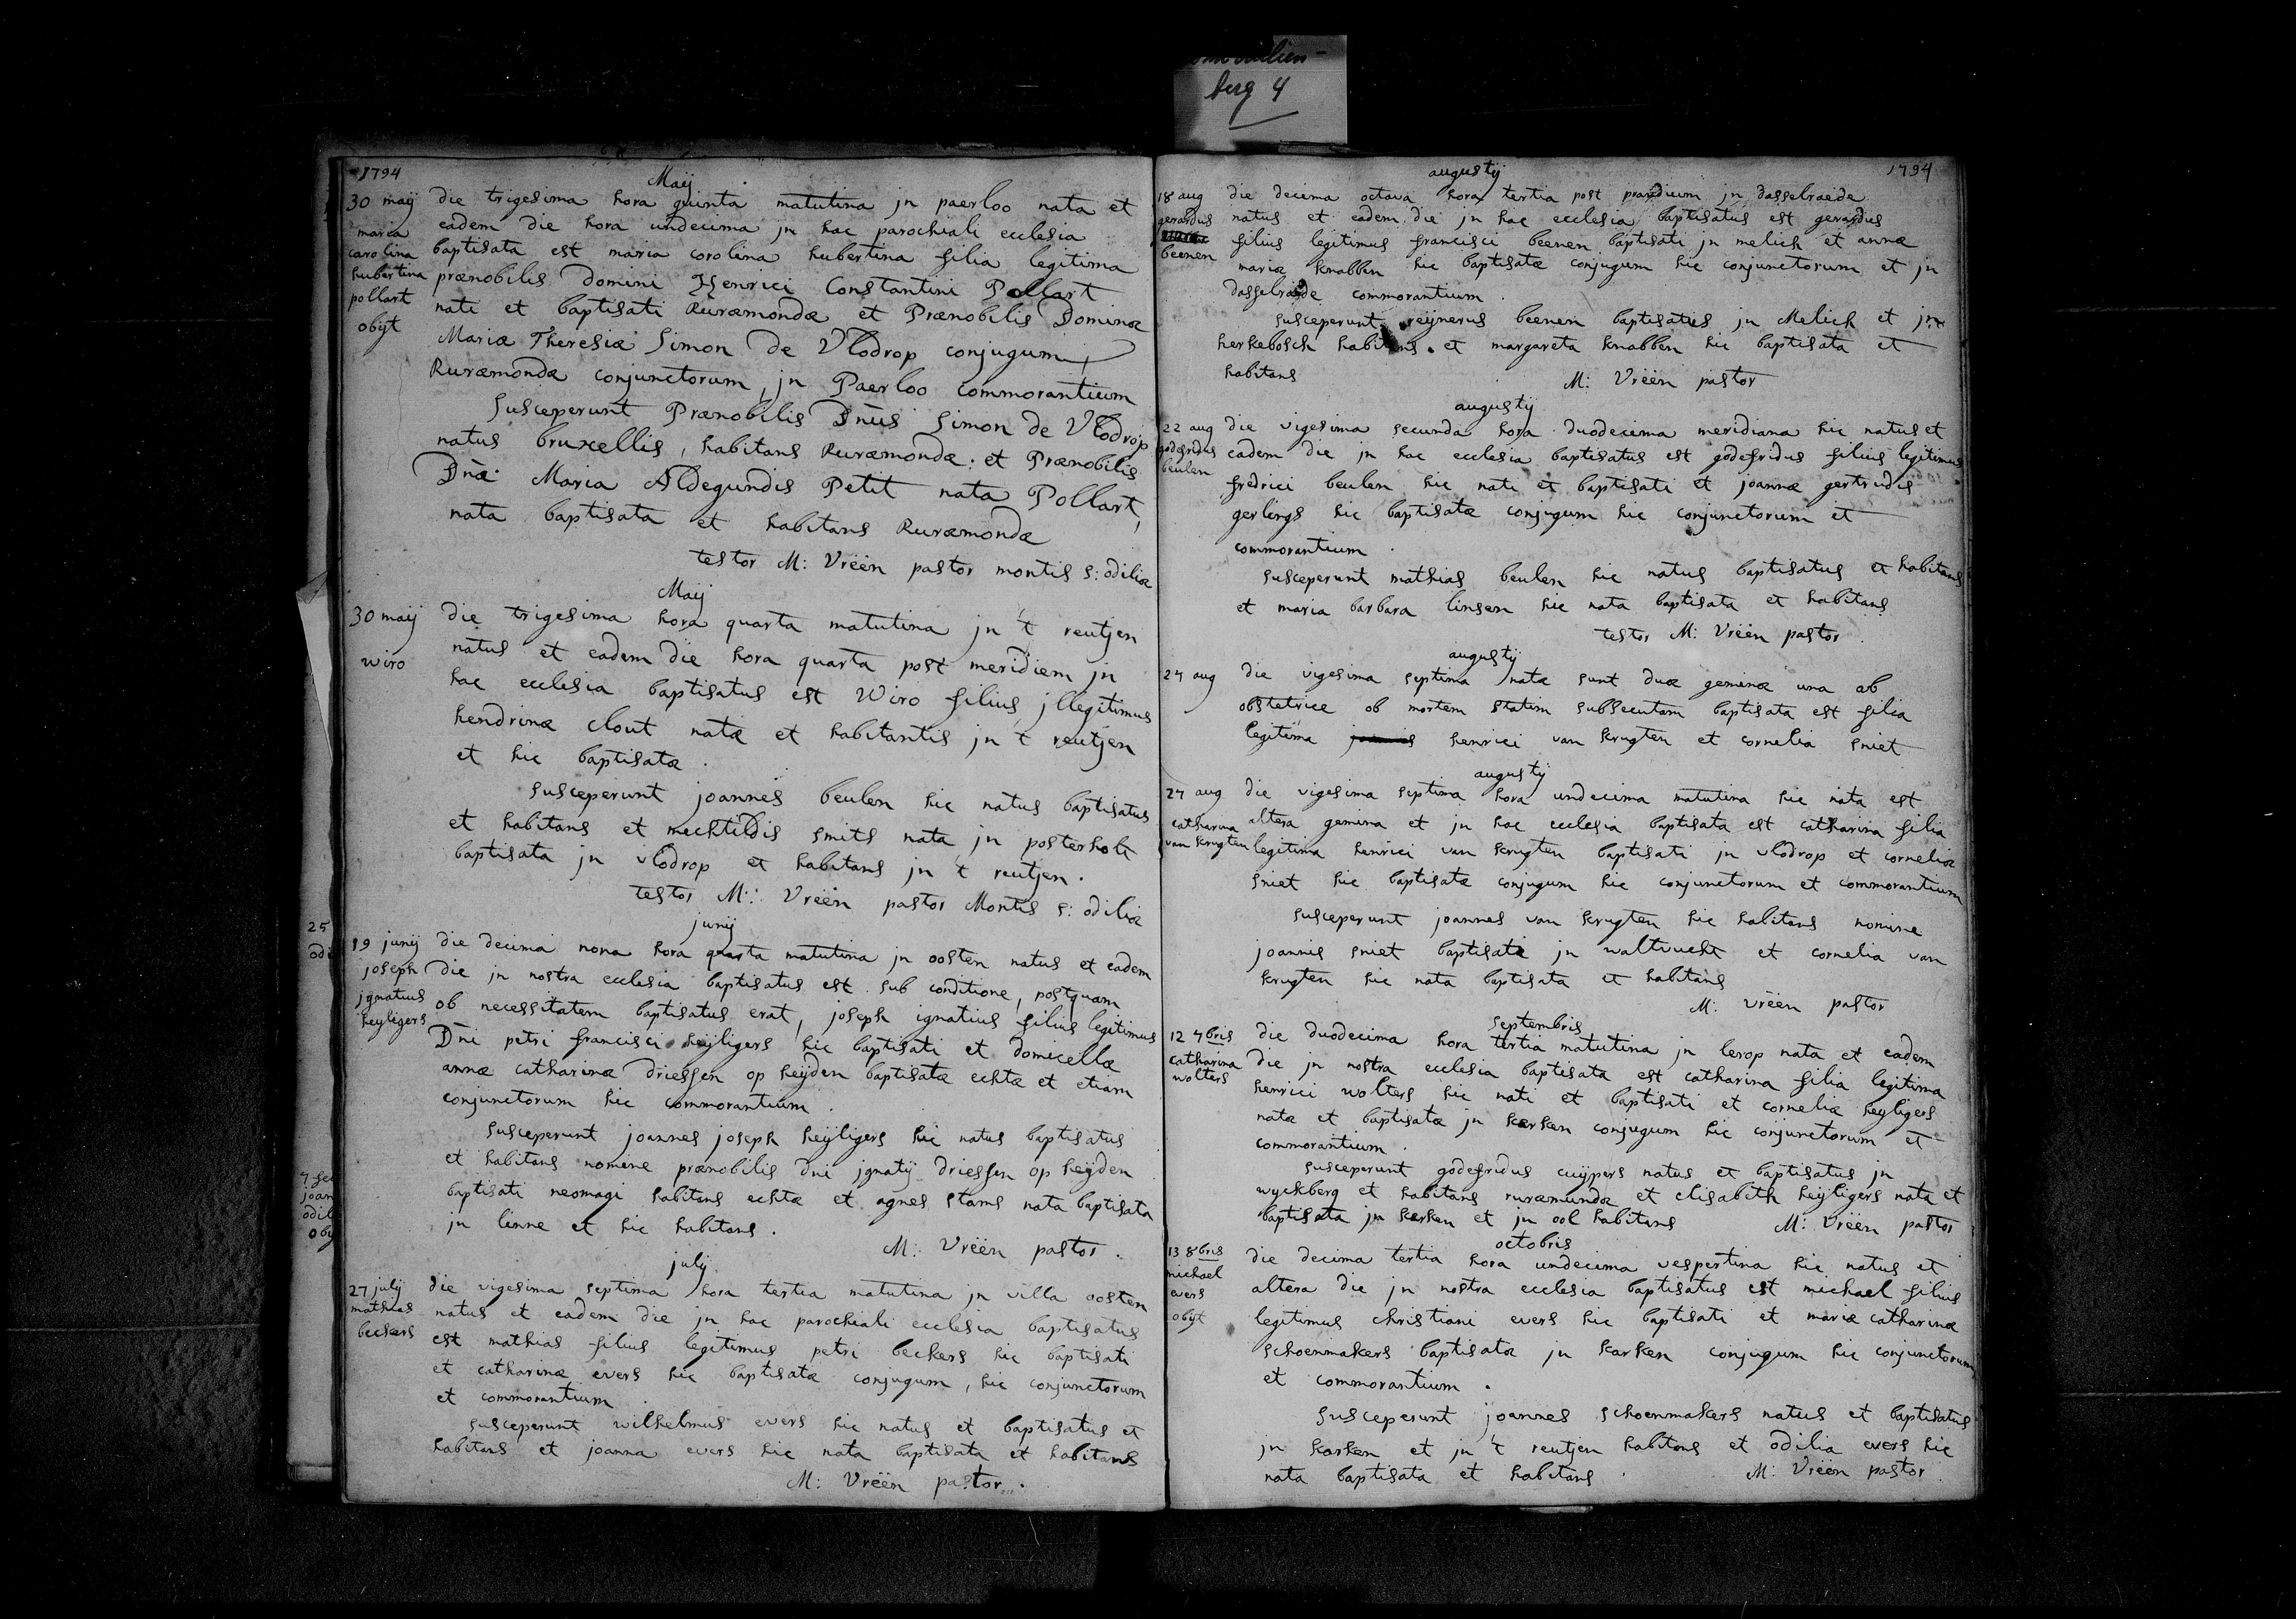 berg 4
1794
Maij
30 maij
maria
carolina
hubertina
pollart
obijt
die trigesima hora quinta matutina jn paerloo nata et
eadem die hora undecima jn hac parochiali ecclesia
baptisata est maria corolina hubertina filia legitima
prænobilis domini Henrici Constantini Pollart
nati et baptisati Ruræmondæ et Prænobilis Dominæ
Mariæ Theresiæ Simon de Vlodrop conjugum,
Ruræmondæ conjunctorum, jn Paerloo commorantium
Susceperunt Prænobilis Dnūs Simon de Vlodrop
natus bruxellis, habitans Ruræmondæ: et Prænobilis
Dnā Maria Aldegundis Petit nata Pollart,
nata baptisata et habitans Ruræmondæ
testor M: Vrëen pastor montis s: odiliæ
Maij
30 maij
wiro
die trigesima hora quarta matutina jn 't reutjen
natus et eadem die hora quarta post meridiem jn
hac ecclesia baptisatus est Wiro filius jllegitimus
hendrinæ clout natæ et habitantis jn 't reutjen
et hic baptisatæ.
susceperunt joannes beulen hic natus baptisatus
et habitans et mechtildis smits nata jn posterholt
baptisata jn vlodrop et habitans jn 't reutjen.
testor M: Vrëen pastor Montis s: odiliæ
junij
19 junij
joseph
jgnatius
heyligers
die decima nona hora quarta matutina jn oosten natus et eadem
die jn nostra ecclesia baptisatus est sub conditione, postquam
ob necessitatem baptisatus erat, joseph ignatius filius legitimus
Dni petri francisci heijligers hic baptisati et domicellæ
annæ catharinæ driessen op heijden baptisatæ echtæ et etiam
conjunctorum hic commorantium.
susceperunt joannes joseph heijligers hic natus baptisatus
et habitans nomine prænobilis dni jgnatij driessen op heijden
baptisati neomagi habitans echtæ et agnes stams nata baptisata
jn linne et hic habitans.
M: Vrëen pastor.
julij
27 julij
mathias
beckers
die vigesima septima hora tertia matutina jn villa oosten
natus et eadem die jn hac parochiali ecclesia baptisatus
est mathias filius legitimus petri beckers hic baptisati
et catharinæ evers hic baptisatæ conjugum, hic conjunctorum
et commorantium.
susceperunt wilhelmus evers hic natus et baptisatus et
habitans et joanna evers hic nata baptisata et habitans
M: Vrëen pastor.
25
odi
joan
odil
obij
1794
augustij
18 aug
gerardus
beenen
die decima octava hora tertia post prandium jn dasselraede
natus et eadem die jn hac ecclesia baptisatus est gerardus
filius legitimus francisci beenen baptisati jn melich et annæ
mariæ knabben hic baptisatæ conjugum hic conjunctorum et jn
dasselraede commorantium.
susceperunt reijnerus beenen baptisatus jn Melich et jn
herkebosch habitans. et margareta knabben hic baptisata et
habitans
M: Vrëen pastor
augustij
22 aug
godefridus
beulen
die vigesima secunda hora duodecima meridiana hic natus et
eadem die jn hac ecclesia baptisatus est godefridus filius legitimus
fredrici beulen hic nati et baptisati et joannæ gertrudis
gerlings hic baptisatæ conjugum hic conjunctorum et
commorantium.
susceperunt mathias beulen hic natus baptisatus et habitans
et maria barbara linsen hic nata baptisata et habitans
testor M: Vrëen pastor
augustij
27 aug
die vigesima septima natæ sunt duæ geminæ una ab
obstetrice ob mortem statim subsecutam baptisata est filia
legitima henrici van krugten et cornelia sniet
augustij
27 aug
catharina
van krugten
die vigesima septima hora undecima matutina hic nata est
altera gemina et jn hac ecclesia baptisata est catharina filia
legitima henrici van krugten baptisati jn vlodrop et corneliæ
sniet hic baptisatæ conjugum hic conjunctorum et commorantium
susceperunt joannes van krugten hic habitans nomine
joannis sniet baptisati jn waltvucht et cornelia van
krugten hic nata baptisata et habitans
M: Vrëen pastor
septembris
12 7bris
catharina
wolters
die duodecima hora tertia matutina jn lerop nata et eadem
die jn nostra ecclesia baptisata est catharina filia legitima
henrici wolters hic nati et baptisati et corneliæ heyligers
natæ et baptisatæ jn karken conjugum hic conjunctorum et
commorantium.
susceperunt godefridus cuijpers natus et baptisatus jn
wyckberg et habitans ruræmundæ et elisabeth heijligers nata et
baptisata jn karken et jn ool habitans
M: Vrëen pastor
octobris
13 8bris
michael
evers
obijt
die decima tertia hora undecima vespertina hic natus et
altera die jn nostra ecclesia baptisatus est michael filius
legitimus christiani evers hic baptisati et mariæ catharinæ
schoenmakers baptisatæ jn karken conjugum hic conjunctorum
et commorantium.
susceperunt joannes schoenmakers natus et baptisatus
jn karken et jn 't reutjen habitans et odilia evers hic
nata baptisata et habitans.
M: Vrëen pastor